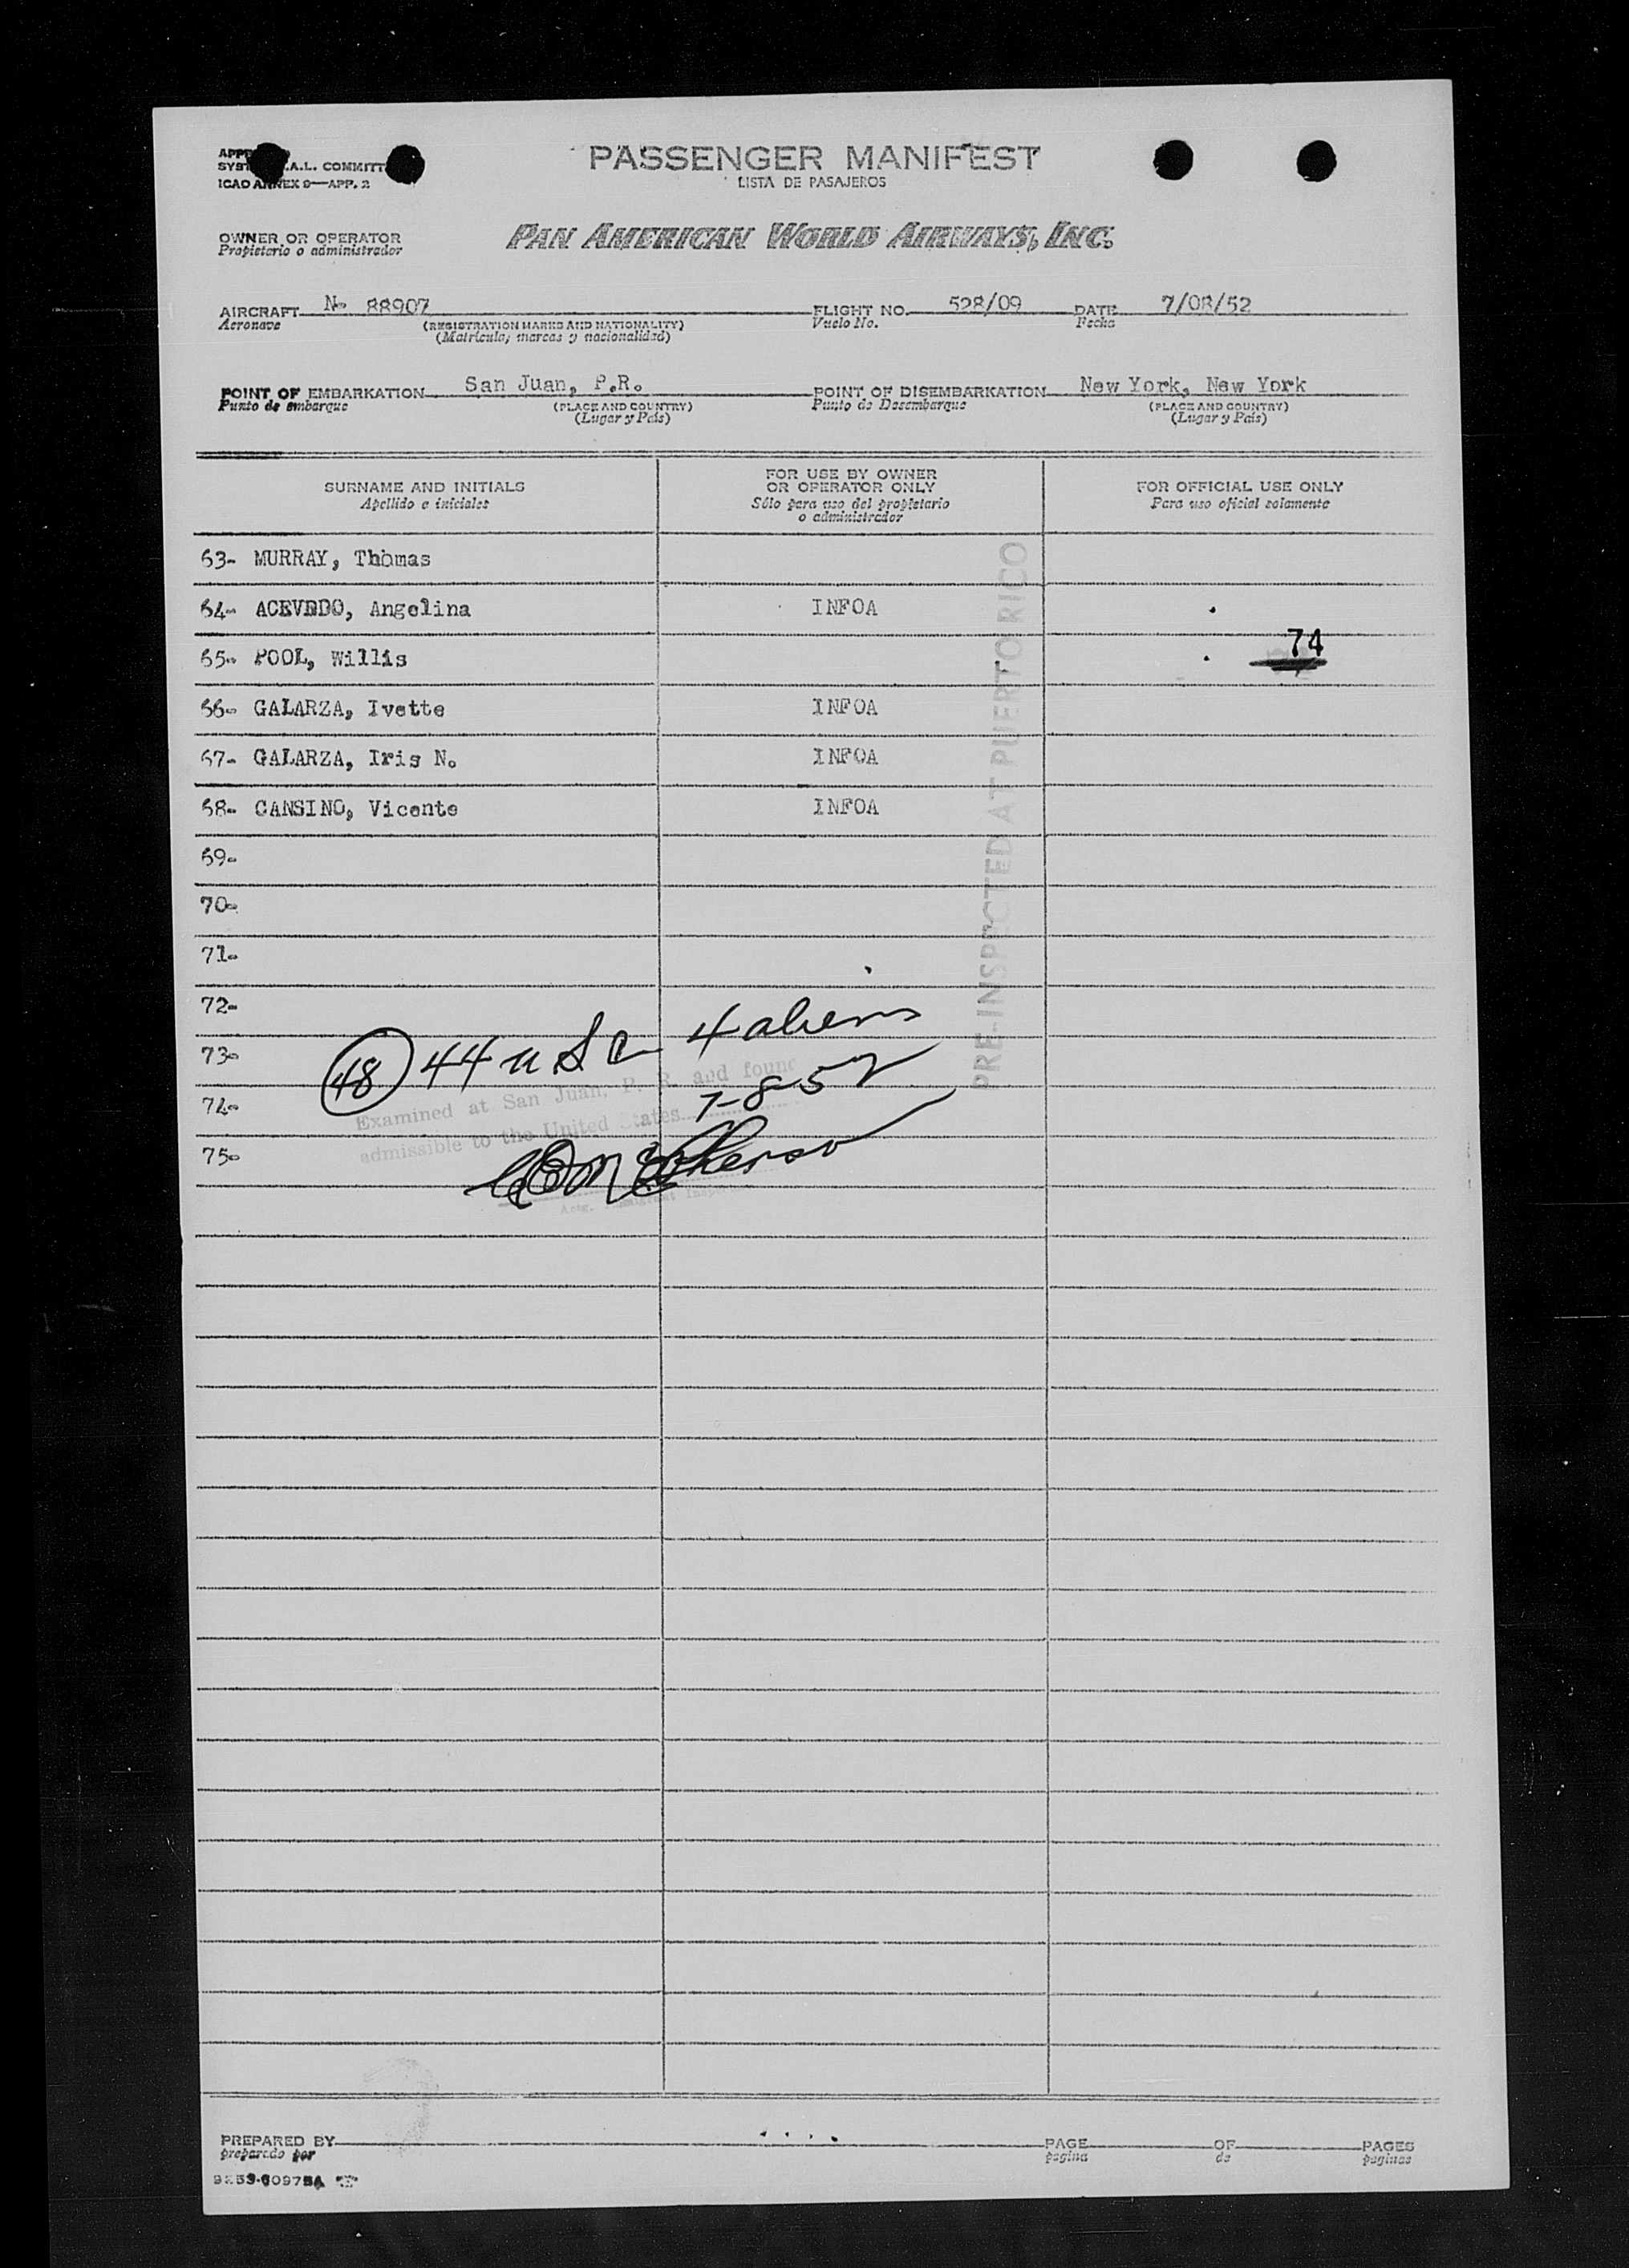 PASSENGER MANIFEST
LISTA DE PASAJEROS
.A.L. COMMITT
ICAO ANNEX 9—APP. 2
OWNER OR OPERATOR
Propietario o administrador
PAN AMERICAN WORLD AIRWAYS, INC.
AIRCRAFT No 88907 FLIGHT NO. 528/09 DATE 7/08/52
Aeronave (REGISTRATION MARKS AND NATIONALITY) Vuelo No. Fecha
(Matrícula, marcas y nacionalidad)
POINT OF EMBARKATION San Juan, P.R. POINT OF DISEMBARKATION New York, New York
Punto de embarque (PLACE AND COUNTRY) Punto de Desembarque (PLACE AND COUNTRY)
(Lugar y País) (Lugar y País)
SURNAME AND INITIALS
Apellido e iniciales
FOR USE BY OWNER
OR OPERATOR ONLY
Sólo para uso del propietario
o administrador
FOR OFFICIAL USE ONLY
Para uso oficial solamente
63- MURRAY, Thomas
64- ACEVEDO, Angelina INFOA
74
65- POOL, Willis
66- GALARZA, Ivette INFOA
67- GALARZA, Iris N. INFOA
68- CANSINO, Vicente INFOA
69-
70-
71-
72-
73-
74-
75-
PRE-INSPECTED AT PUERTO RICO
48 44 USC 4 aliens
Examined at San Juan, P. R. and found
7-8-52
admissible to the United States
PREPARED BY PAGE OF PAGES
preparado por pagina de paginas